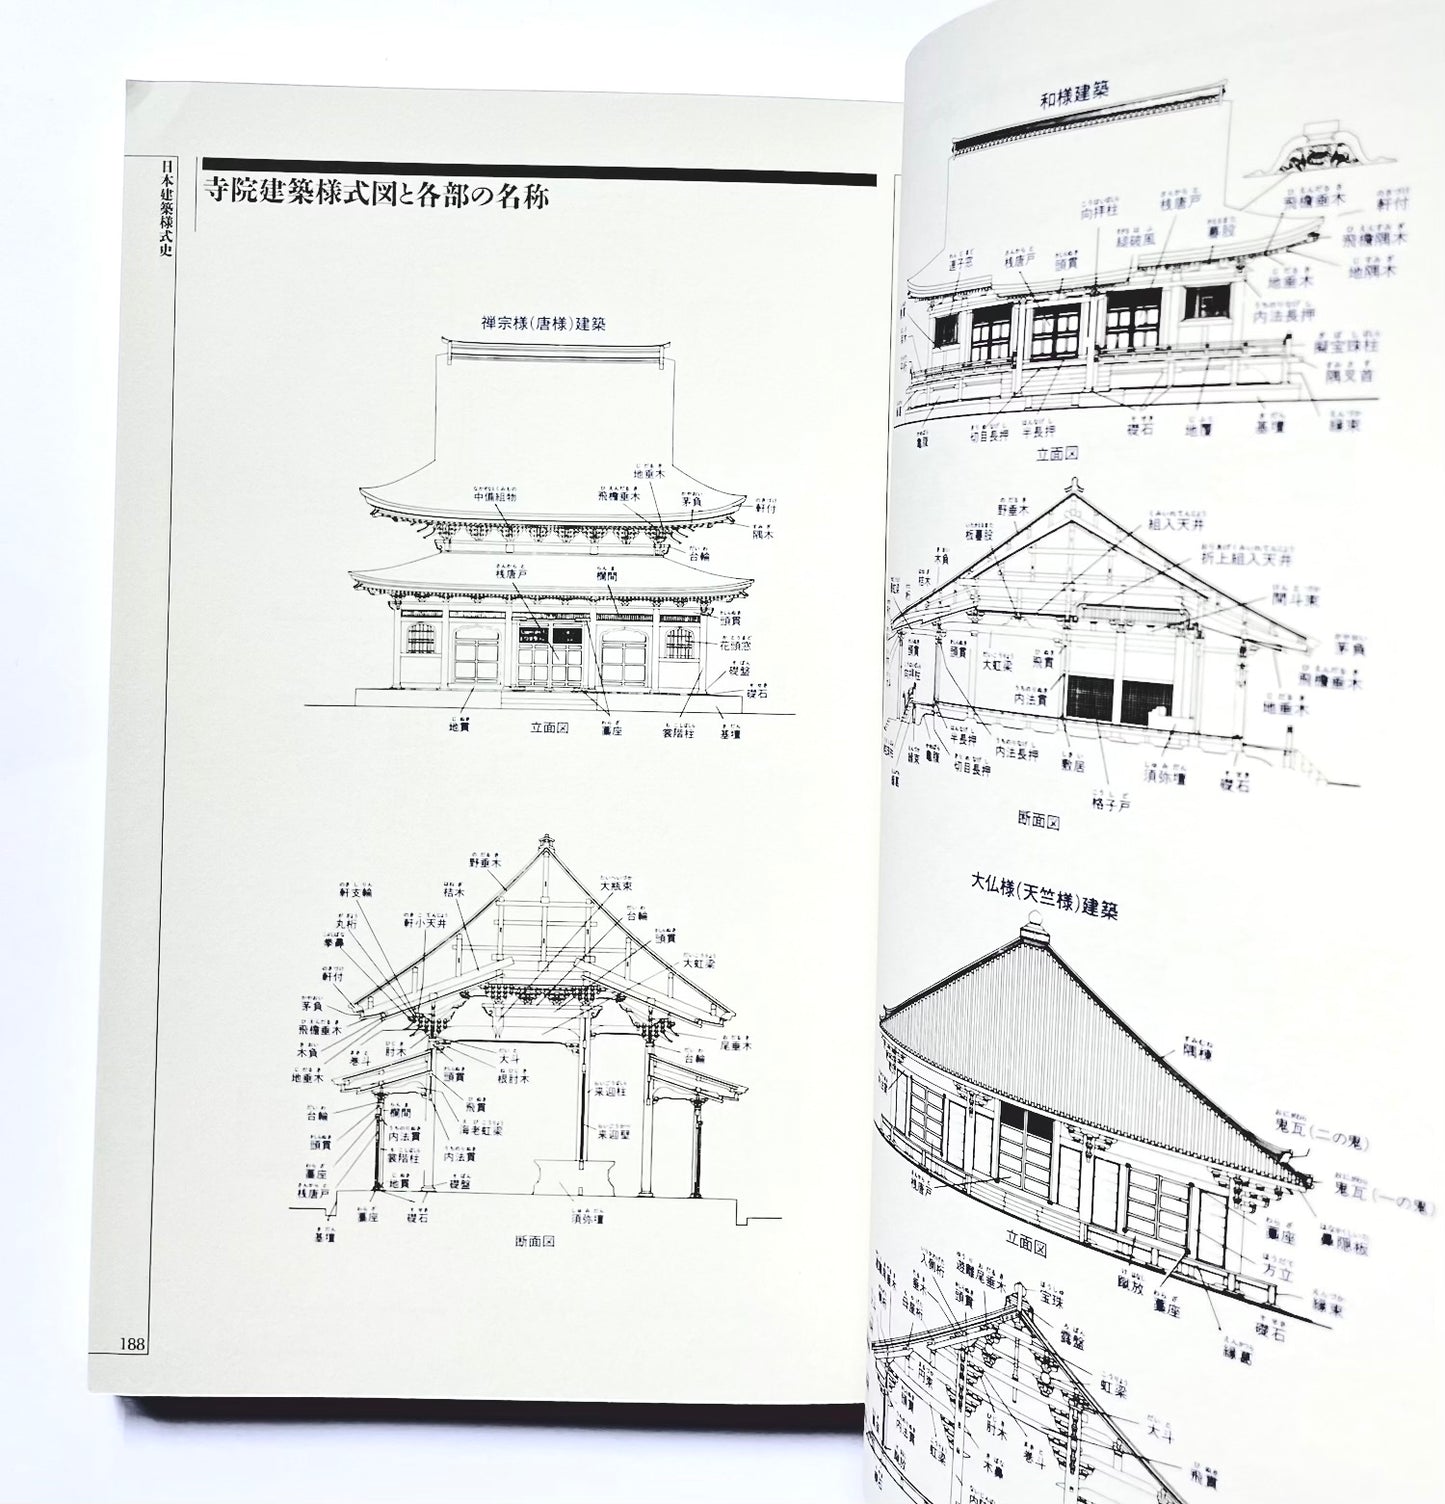 日本建築様式史
寺院建築様式図と各部の名称
禅宗様(唐様)建築
地垂木
中備組物
飛檐垂木
茅負
軒付
隅木
台輪
桟唐戸
欄間
頭貫
花頭窓
礎盤
礎石
地貫
立面図
藁座
裳階柱
基壇
野垂木
軒支輪
桔木
大瓶束
丸桁
軒小天井
台輪
拳鼻
頭貫
大虹梁
軒付
茅負
飛檐垂木
木負
巻斗
肘木
大斗
尾垂木
台輪
地垂木
頭貫
根肘木
来迎柱
台輪
欄間
飛貫
海老虹梁
頭貫
内法貫
来迎壁
藁座
裳階柱
内法貫
桟唐戸
地貫
礎盤
藁座
礎石
須弥壇
基壇
断面図
188
和様建築
向拝柱
桟唐戸
飛檐垂木
軒付
縋破風
蟇股
飛檐隅木
連子窓
桟唐戸
頭貫
地垂木
地隅木
内法長押
擬宝珠柱
隅叉首
亀腹
切目長押
半長押
礎石
地覆
基壇
縁束
立面図
野垂木
組入天井
板蟇股
木負
折上組入天井
桔木
間斗束
茅負
頭貫
頭貫
大虹梁
飛貫
飛檐垂木
向拝柱
内法貫
地垂木
半長押
縁束
亀腹
切目長押
内法長押
敷居
須弥壇
礎石
格子戸
断面図
大仏様(天竺様)建築
隅棟
鬼瓦(二の鬼)
鬼瓦(一の鬼)
桟唐戸
藁座
鼻隠板
立面図
方立
蹴放
藁座
縁束
礎石
縁葛
入側桁
遊離尾垂木
垂木
頭貫
宝珠
露盤
虹梁
円束
頭貫
大斗
内法貫
虹梁
肘木
巻斗
飛貫
蹴放
木鼻